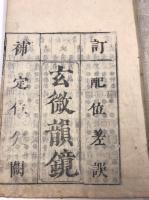 訂配位差誤
玄微韻鏡
補定位欠闕